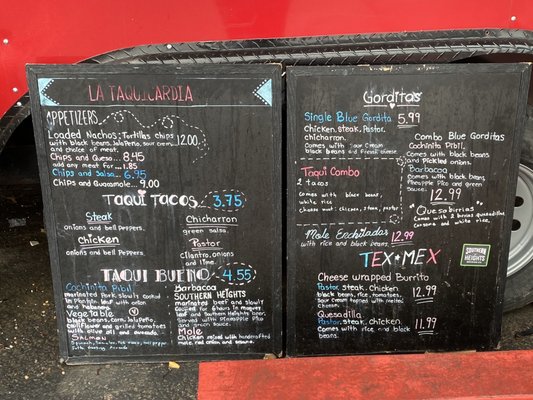 LA TAQUICARDIA
APPETIZERS
Loaded Nachos: Tortillas chips
with black beans, Jalapeño, sour cream
and choice of meat. 12.00
Chips and Queso... 8.45
add any meat for 1.85
Chips and Salsa... 6.95
Chips and Guacamole... 9.00
TAQUI TACOS 3.75
Steak
onions and bell Peppers.
Chicken
onions and bell Peppers.
Chicharron
green salsa
Pastor
cilantro, onions
and lime
TAQUI BUENO 4.55
Cochinita Pibil
marinated Pork slowly cooked
Vegetable
black beans, corn, Jalapeño
cauliflower and grilled tomatoes
with onion oil and avocado.
Salmon
Barbacoa
SOUTHERN HEIGHTS
marinated beef and slowly
and Southern Heights beer.
Served with Pineapple Pico
and green sauce.
Mole
Chicken
mole, red onion and
Gorditas
Single Blue Gordita 5.99
Chicken, steak, Pastor,
chicharron.
Comes with Sour Cream
black Beans and Fresh cheese
Taqui Combo
2 Tacos
comes with black beans,
white rice
choose meat: chicken, steak, pastor
Mole Enchiladas 12.99
with rice and black beans.
Combo Blue Gorditas
Cochinita Pibil.
Comes with black beans
and Pickled onions.
Barbacoa
Comes with black beans,
Pineapple Pico and green
Sauce. 12.99
"Quesabirrias"
Comes with 2 birrias quesadillas
consome and white rice.
TEX★MEX
SOUTHERN
HEIGHTS
Cheese wrapped Burrito
Pastor, steak, chicken
black beans, rice, tomatoes,
sour cream topped with melted
cheese. 12.99
Quesadilla
Pastor, steak, chicken.
Comes with rice and black
beans. 11.99